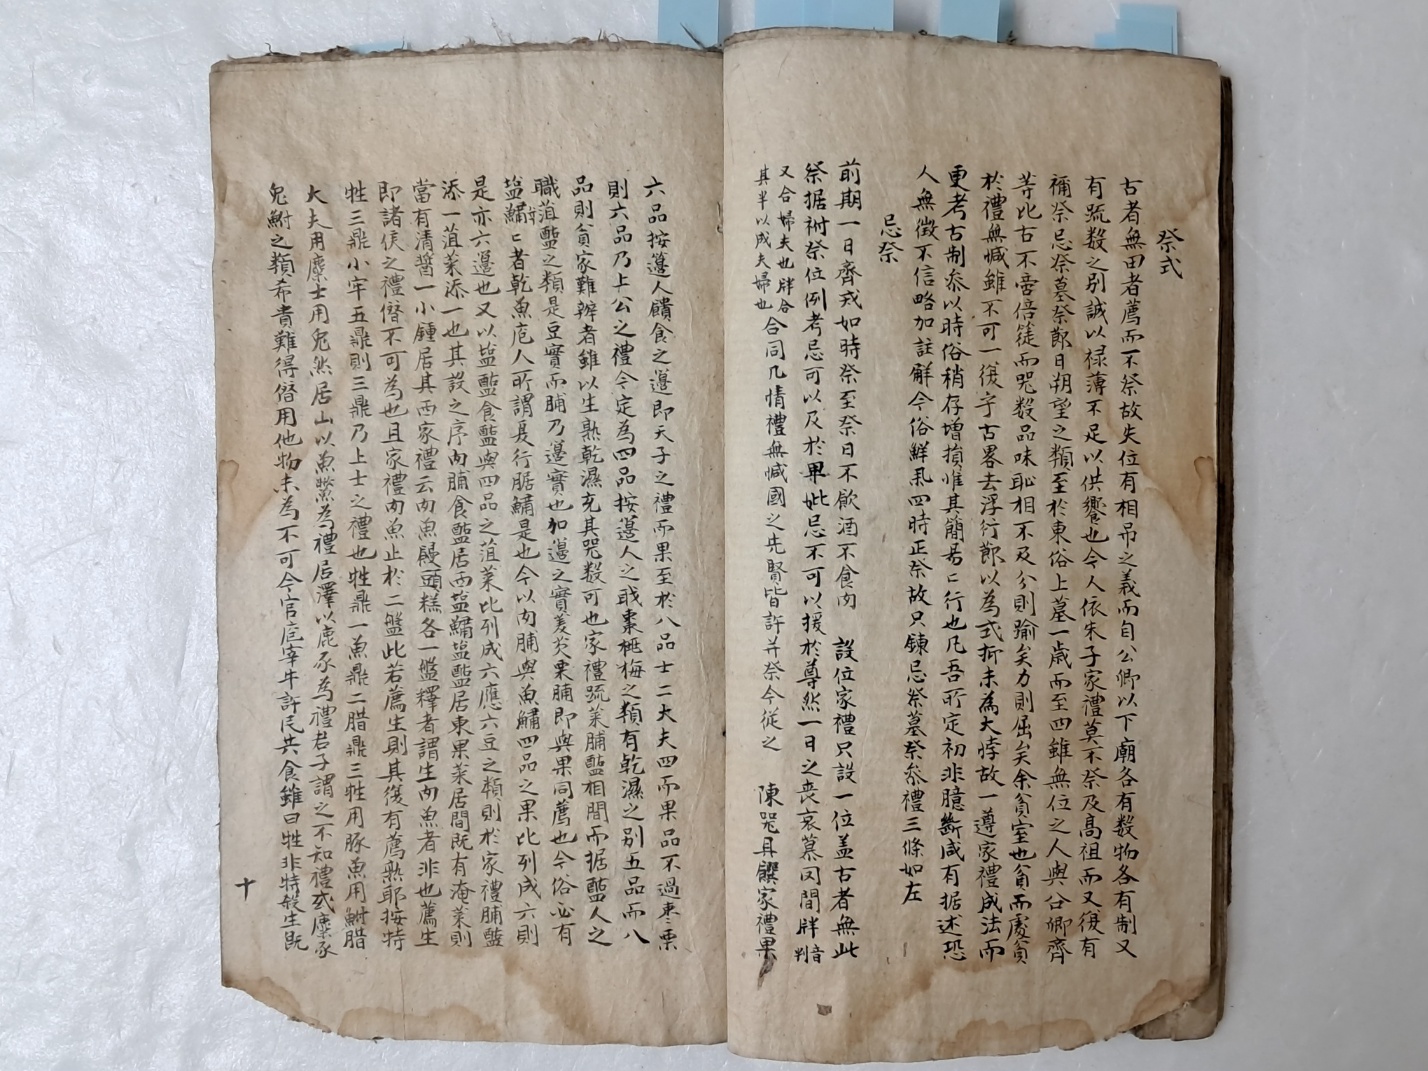 祭式
古者無田者薦而不祭故失位有相吊之義而自公卿以下廟各有数物各有制又
有䟽数之別誠以禄薄不足以供饗也今人依朱子家禮莫不祭及高祖而又復有
禰祭忌祭墓祭節日朔望之類至於東俗上墓一歲而至四雖無位之人與公卿齊
等比古不啻倍簁而咒数品味恥相不及分則踰矣力則屈矣余貧室也貧而處貧
於禮無憾雖不可一復乎古畧去浮行節以為式折未為大悖故一遵家禮成法而
更考古制参以時俗稍存增損惟其簡易〻行也凡吾所定初非臆斷咸有据述恐
人無徵不信略加註觧今俗鮮行四時正祭故只錄忌祭墓祭参禮三條如左
忌祭
前期一日齊戒如時祭至祭日不飮酒不食肉 設位家禮只設一位盖古者無此
祭据祔祭位例考忌可以及於妣妣忌不可以援於尊然一日之喪哀慕罔間胖音判
又合婦夫也胖合其半以成夫婦也合同凡情禮無憾國之先賢皆許并祭今從之 陳咒具饌家禮果
六品按籩人饋食之籩即天子之禮而果至於八品士二大夫四而果品不過枣栗
則六品乃上公之禮今定為四品按籩人之職棗桃梅之類有乾濕之別五品而八
品則貧家難辦者雖以生𤋱乾濕充其咒数可也家禮䟽菜脯醢相間而据醢人之
職菹醢之類是豆實而脯乃籩實也加籩之實菱芡栗脯即與果同薦也今俗必有
塩鱐〻者乾魚庖人所謂夏行腒鱐是也今以肉脯與魚鱐四品之果比列成六則
是亦六籩也又以塩醢食醢與四品之菹菜比列成六應六豆之類則於家禮脯醢
添一菹菜添一也其設之序肉脯食醢居西塩鱐塩醢居東果菜居間既有淹菜則
當有清醬一小鍾居其西家禮云肉魚饅頭糕各一盤釋者謂生肉魚者非也薦生
即諸侯之禮僭不可為也且家禮肉魚止於二盤此若薦生則其復有薦𤋱耶按特
牲三鼎小牢五鼎則三鼎乃上士之禮也牲鼎一魚鼎二腊鼎三牲用豚魚用鮒腊
大夫用麋士用兔然居山以魚鱉為禮居澤以鹿豕為禮君子謂之不知禮或麋豕
兔鮒之類希貴難得僭用他物未為不可今官庖宰牛許民共食雖曰牲非特殺生既
十